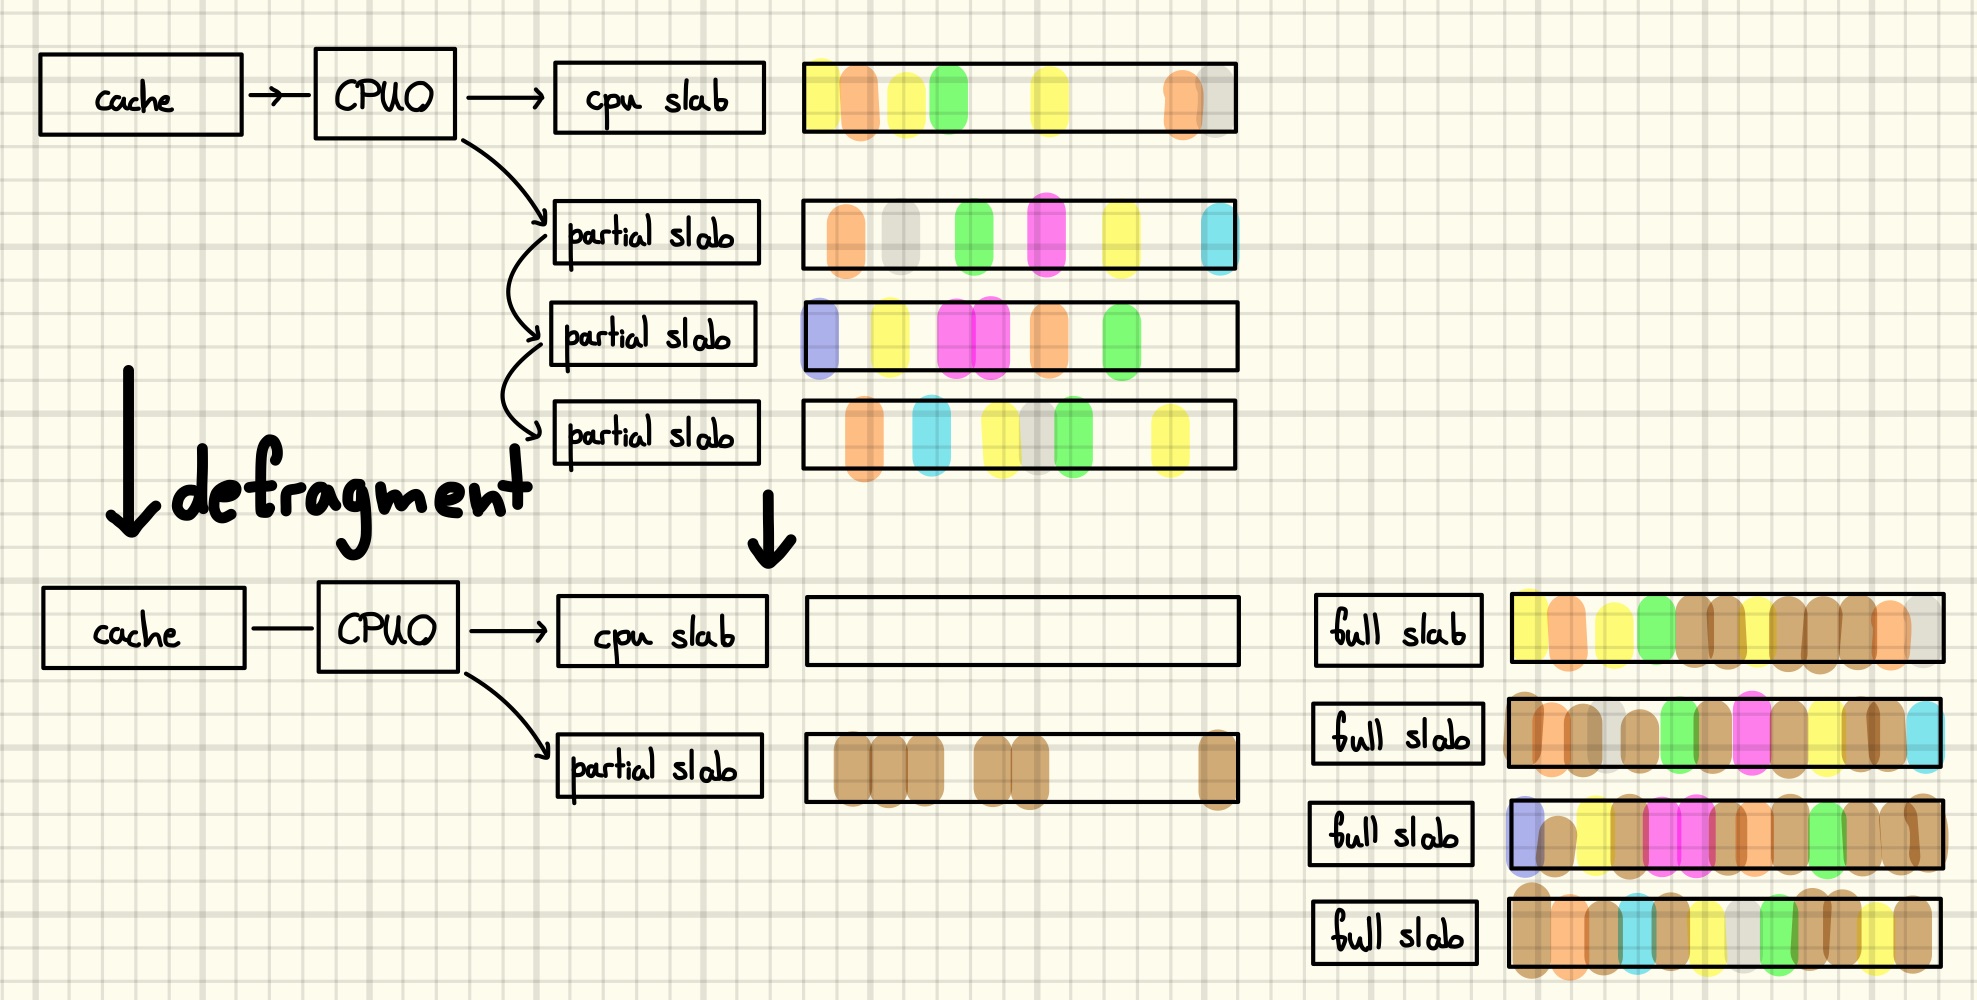 cache
CPU0
cpu slab
partial slab
partial slab
partial slab
defragment
cache
CPU0
cpu slab
partial slab
full slab
full slab
full slab
full slab